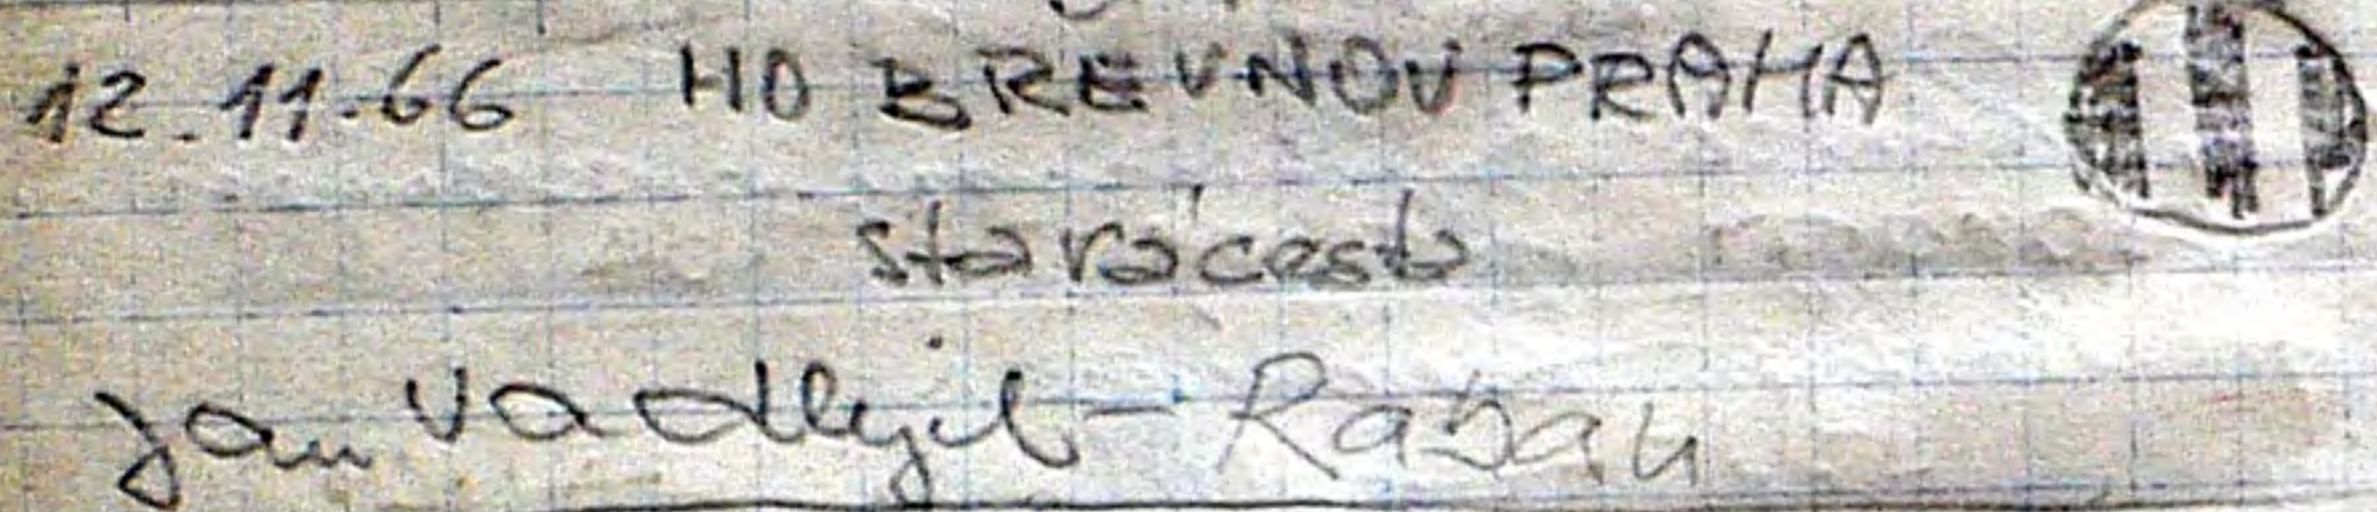 12.11.66 HO BŘEVNOV PRAHA
stará cesta
Jan Vadlejch - Raban